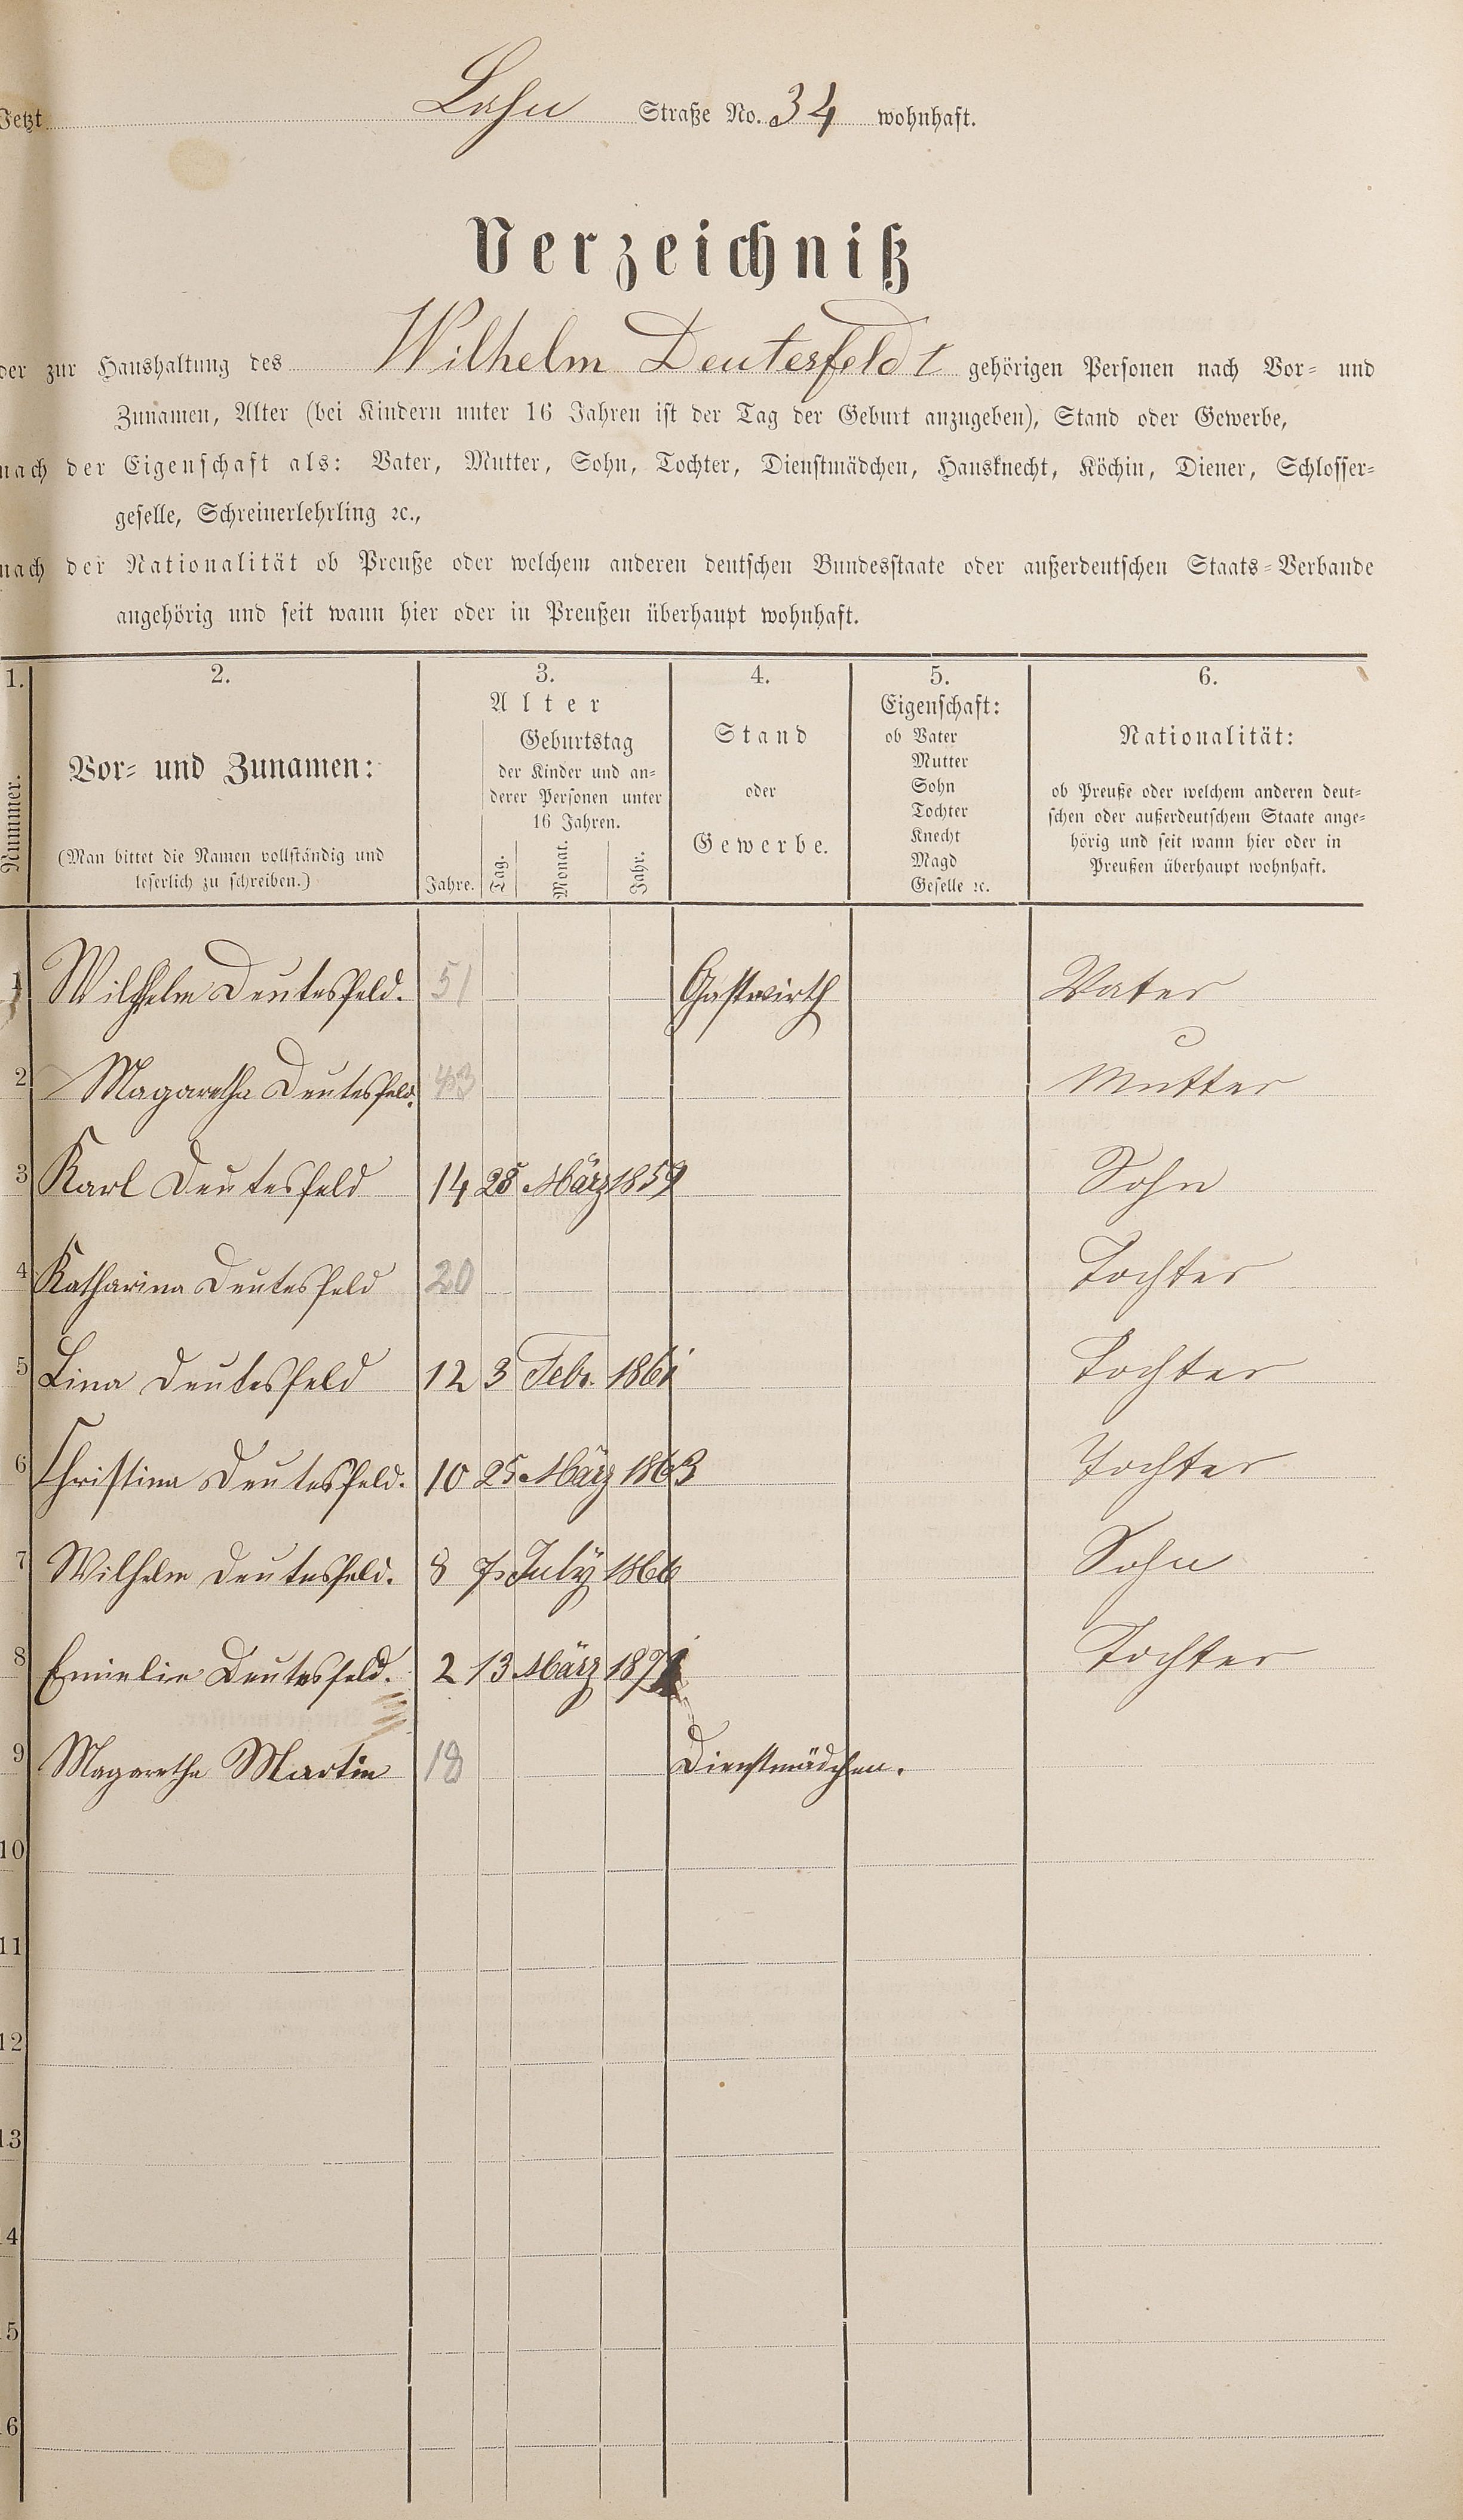 Jetzt Lahn Straße No. 34 wohnhaft.
Verzeichniß
der zur Haushaltung des Wilhelm Deutesfeld gehörigen Personen nach Vor- und
Zunamen, Alter (bei Kindern unter 16 Jahren ist der Tag der Geburt anzugeben), Stand oder Gewerbe,
nach der Eigenschaft als: Vater, Mutter, Sohn, Tochter, Dienstmädchen, Hausknecht, Köchin, Diener, Schlosser-
geselle, Schreinerlehrling ꝛc.,
nach der Nationalität ob Preuße oder welchem anderen deutschen Bundesstaate oder außerdeutschen Staats-Verbande
angehörig und seit wann hier oder in Preußen überhaupt wohnhaft.
1. 2. 3. 4. 5. 6.
Nummer.
Vor- und Zunamen:
(Man bittet die Namen vollständig und
leserlich zu schreiben.)
Alter
Jahre.
Geburtstag
der Kinder und an-
derer Personen unter
16 Jahren.
Tag. Monat. Jahr.
Stand
oder
Gewerbe.
Eigenschaft:
ob Vater
Mutter
Sohn
Tochter
Knecht
Magd
Geselle ꝛc.
Nationalität:
ob Preuße oder welchem anderen deut-
schen oder außerdeutschem Staate ange-
hörig und seit wann hier oder in
Preußen überhaupt wohnhaft.
1 Wilhelm Deutesfeld. 51 Gastwirth Vater
2 Magaretha Deutesfeld. 43 Mutter
3 Karl Deutesfeld 14 28 März 1859 Sohn
4 Katharina Deutesfeld 20 Tochter
5 Lina Deutesfeld 12 3 Febr. 1861 Tochter
6 Christina Deutesfeld. 10 25 März 1863 Tochter
7 Wilhelm Deutesfeld. 8 7 July 1866 Sohn
8 Emielie Deutesfeld. 2 13 März 1871 Tochter
9 Magarethe Martin 18 Dienstmädchen.
10
11
12
13
4
5
6